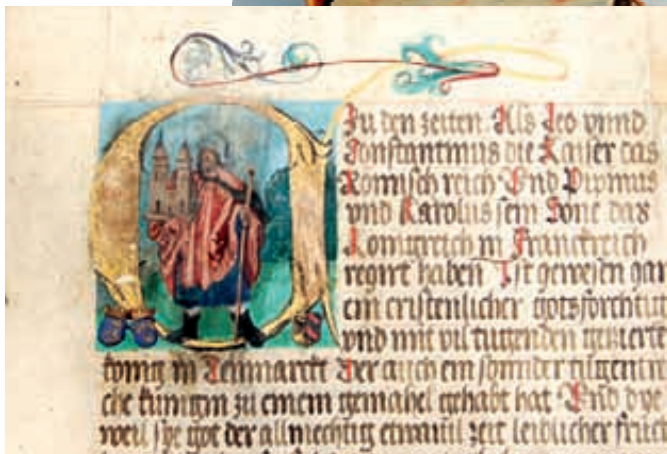 Zu den zeiten. Als Leo vnnd
Constantinus die Kaiser das
Romisch reich Vnd Pipinus
vnd Karolus sein Sone das
Konigreich in Franckreich
regirt haben Ist gewesen gar
ein cristenlicher gotsforchtiger
vnd mit vil tugenden gezierter
konig in Denmarckt Der auch ein sonnder
che kunigin zu einem gemahel gehabt hat Vnd dye
weil sye got der allmechtig ettwauil zeit leiblicher